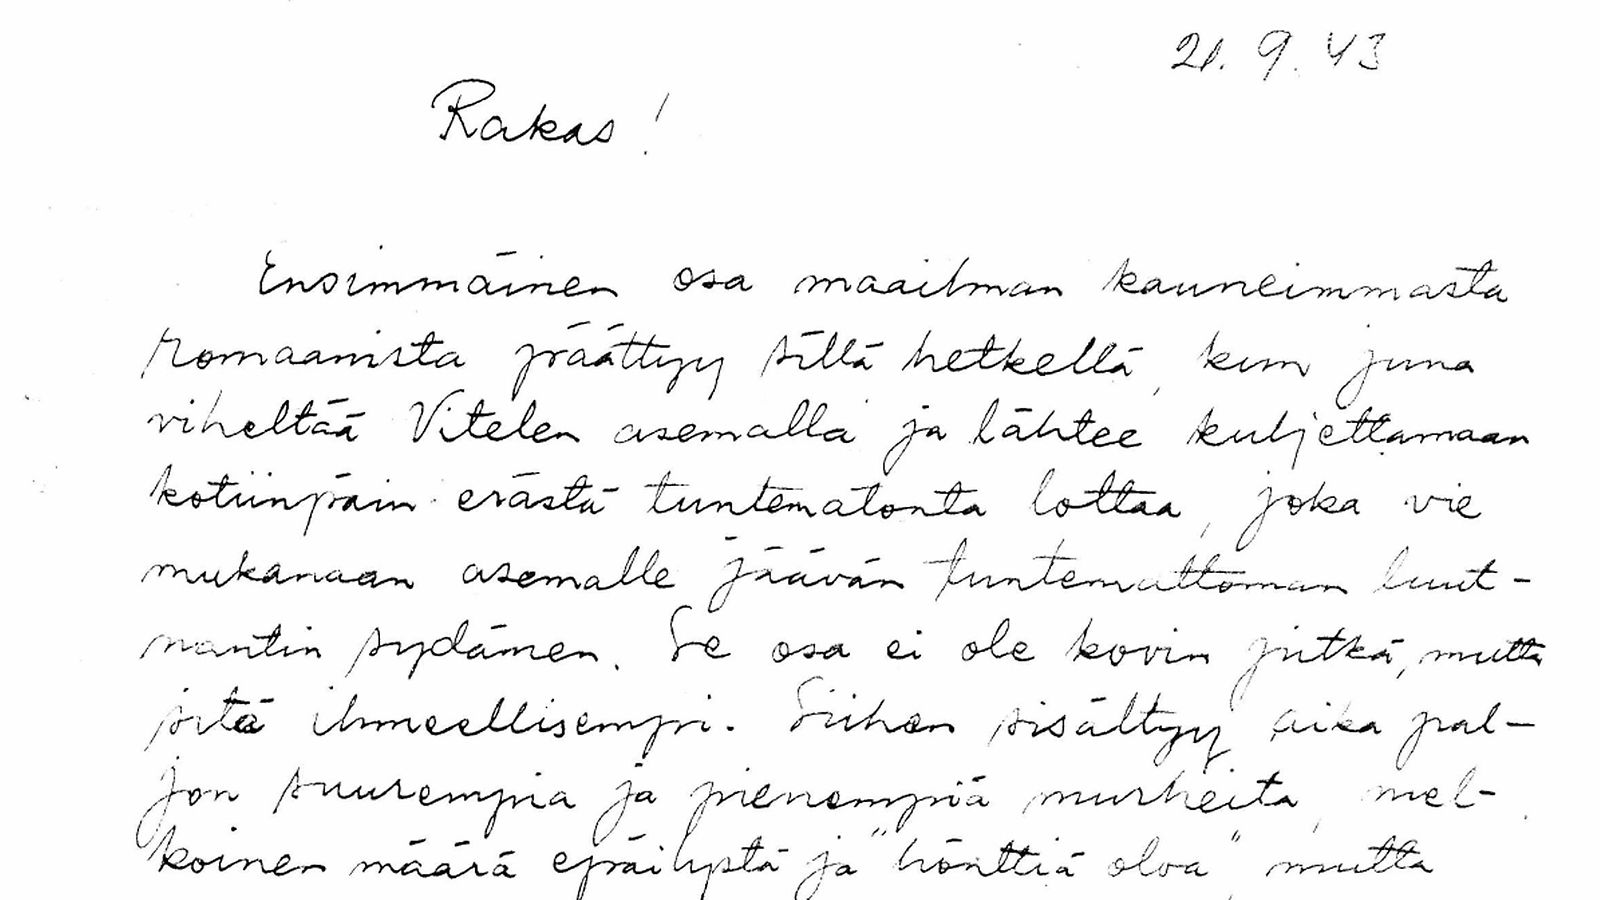 21. 9. 43
Rakas!
Ensimmäinen osa maailman kauneimmasta
romaanista päättyy sillä hetkellä, kun juna
viheltää Vitelen asemalla ja lähtee kuljettamaan
kotiinpäin erästä tuntematonta lottaa, joka vie
mukanaan asemalle jäävän tuntemattoman luut-
nantin sydämen. Se osa ei ole kovin pitkä, mutta
sitä ihmeellisempi. Siihen sisältyy aika pal-
jon suurempia ja pienempiä murheita, mel-
koinen määrä epäilystä ja "hönttiä oloa" mutta